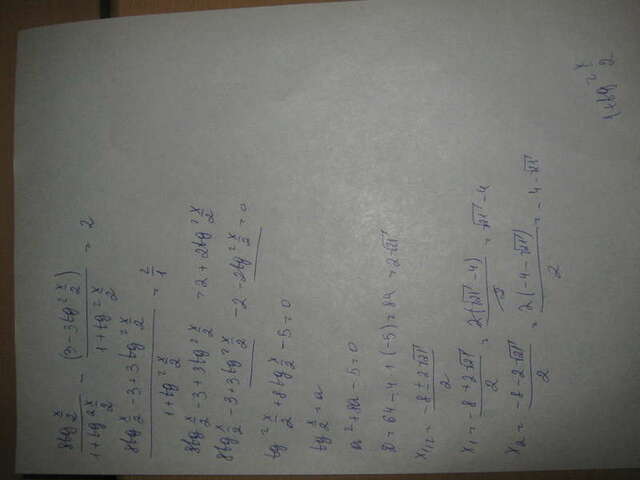 8tg x/2 / 1+tg² x/2 - (3-3tg² x/2) / 1+tg² x/2 = 2
8tg x/2 - 3 + 3tg² x/2 / 1+tg² x/2 = 2/1
8tg x/2 - 3 + 3tg² x/2 = 2 + 2tg² x/2
8tg x/2 - 3 + 3tg² x/2 - 2 - 2tg² x/2 = 0
tg² x/2 + 8tg x/2 - 5 = 0
tg x/2 = a
a² + 8a - 5 = 0
D = 64 - 4 * (-5) = 84 = 2√21
x1/2 = -8 ± 2√21 / 2
x1 = -8 + 2√21 / 2 = 2(√21 - 4) / 2 = √21 - 4
x2 = -8 - 2√21 / 2 = 2(-4 - √21) / 2 = -4 - √21
1+tg² x/2